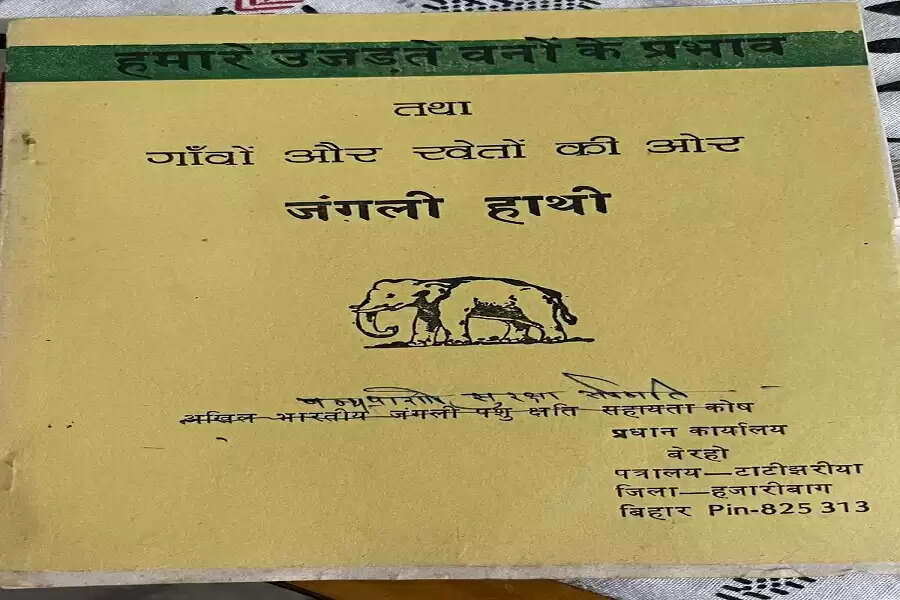 हमारे उजड़ते वनों के प्रभाव
तथा
गाँवों और खेतों की ओर
जंगली हाथी
सुरक्षा
अखिल भारतीय जंगली पशु क्षति सहायता कोष
प्रधान कार्यालय
बेरहो
पत्रालय—टाटीझरीया
जिला—हजारीबाग
बिहार Pin-825 313